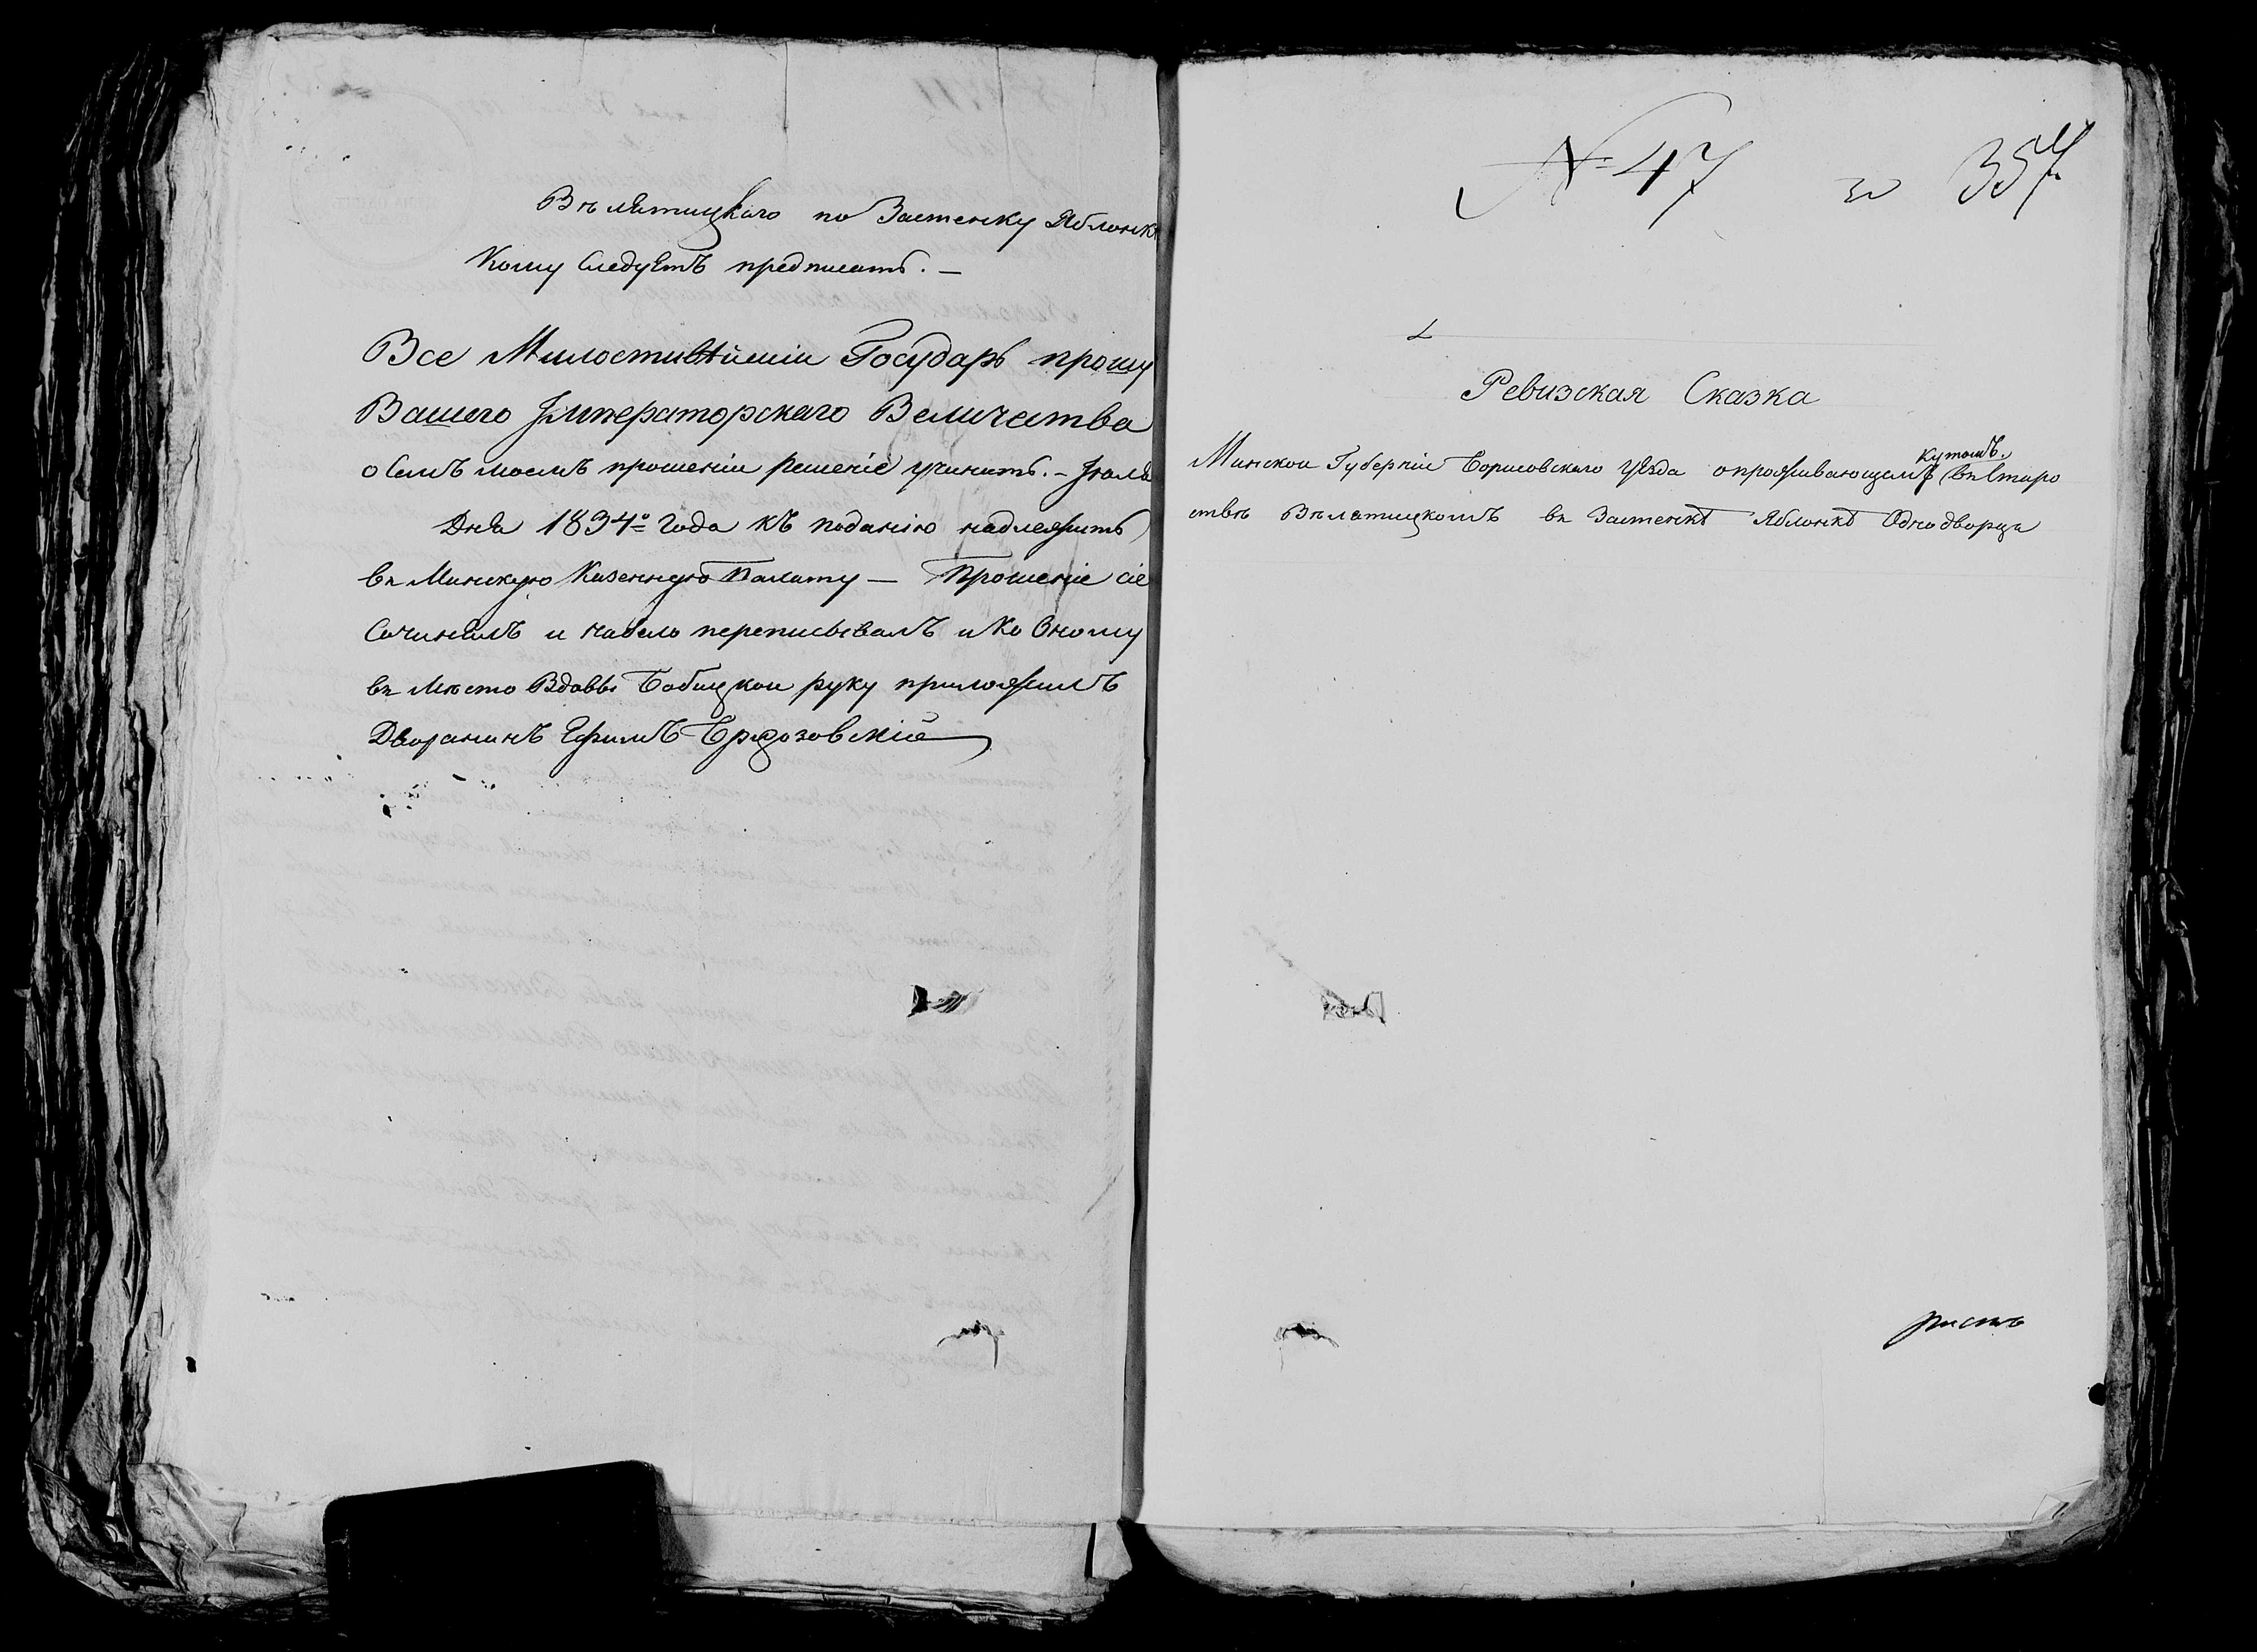 Вѣлятицкаго по Застенку Яблонк
Кому Следуетъ предписать. —
Все Милостивѣйшіи Государь прошу
Вашего Императорскаго Величества
о Семъ моемъ прошеніи решеніе учинить. — Іюля
Дня 1834го года къ поданію надлежитъ
въ Минскую Казенную Палату — Прошеніе сіе
Сочинялъ и набело переписывалъ и Ко Оному
въ мѣсто Вдовы Бобицкои руку приложилъ
Дворянинъ
№ 47 357
Ревизская Сказка
кутомъ
Минскои Губерніи Борисовскаго уѣзда о проживающемъ въ Старо
ствѣ Вѣлятицкомъ въ Застенкѣ Яблонкѣ Однодворца